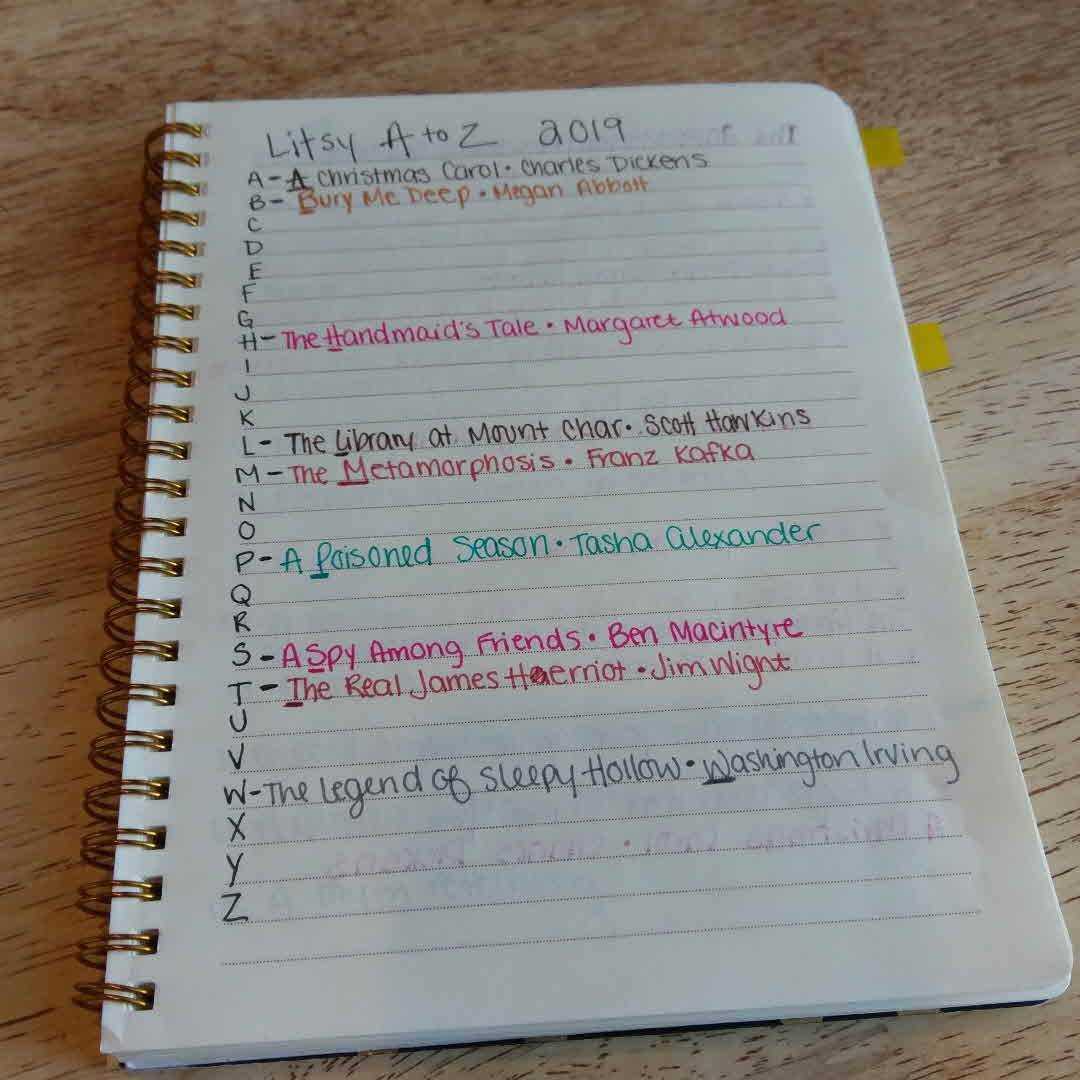 Litsy A to Z 2019
A - A Christmas Carol • Charles Dickens
B - Bury Me Deep • Megan Abbott
C
D
E
F
G
H - The Handmaid's Tale • Margaret Atwood
I
J
K
L - The Library at Mount Char • Scott Hawkins
M - The Metamorphosis • Franz Kafka
N
O
P - A Poisoned Season • Tasha Alexander
Q
R
S - A Spy Among Friends • Ben Macintyre
T - The Real James Haerriot • Jim Wight
U
V
W - The Legend of Sleepy Hollow • Washington Irving
X
Y
Z